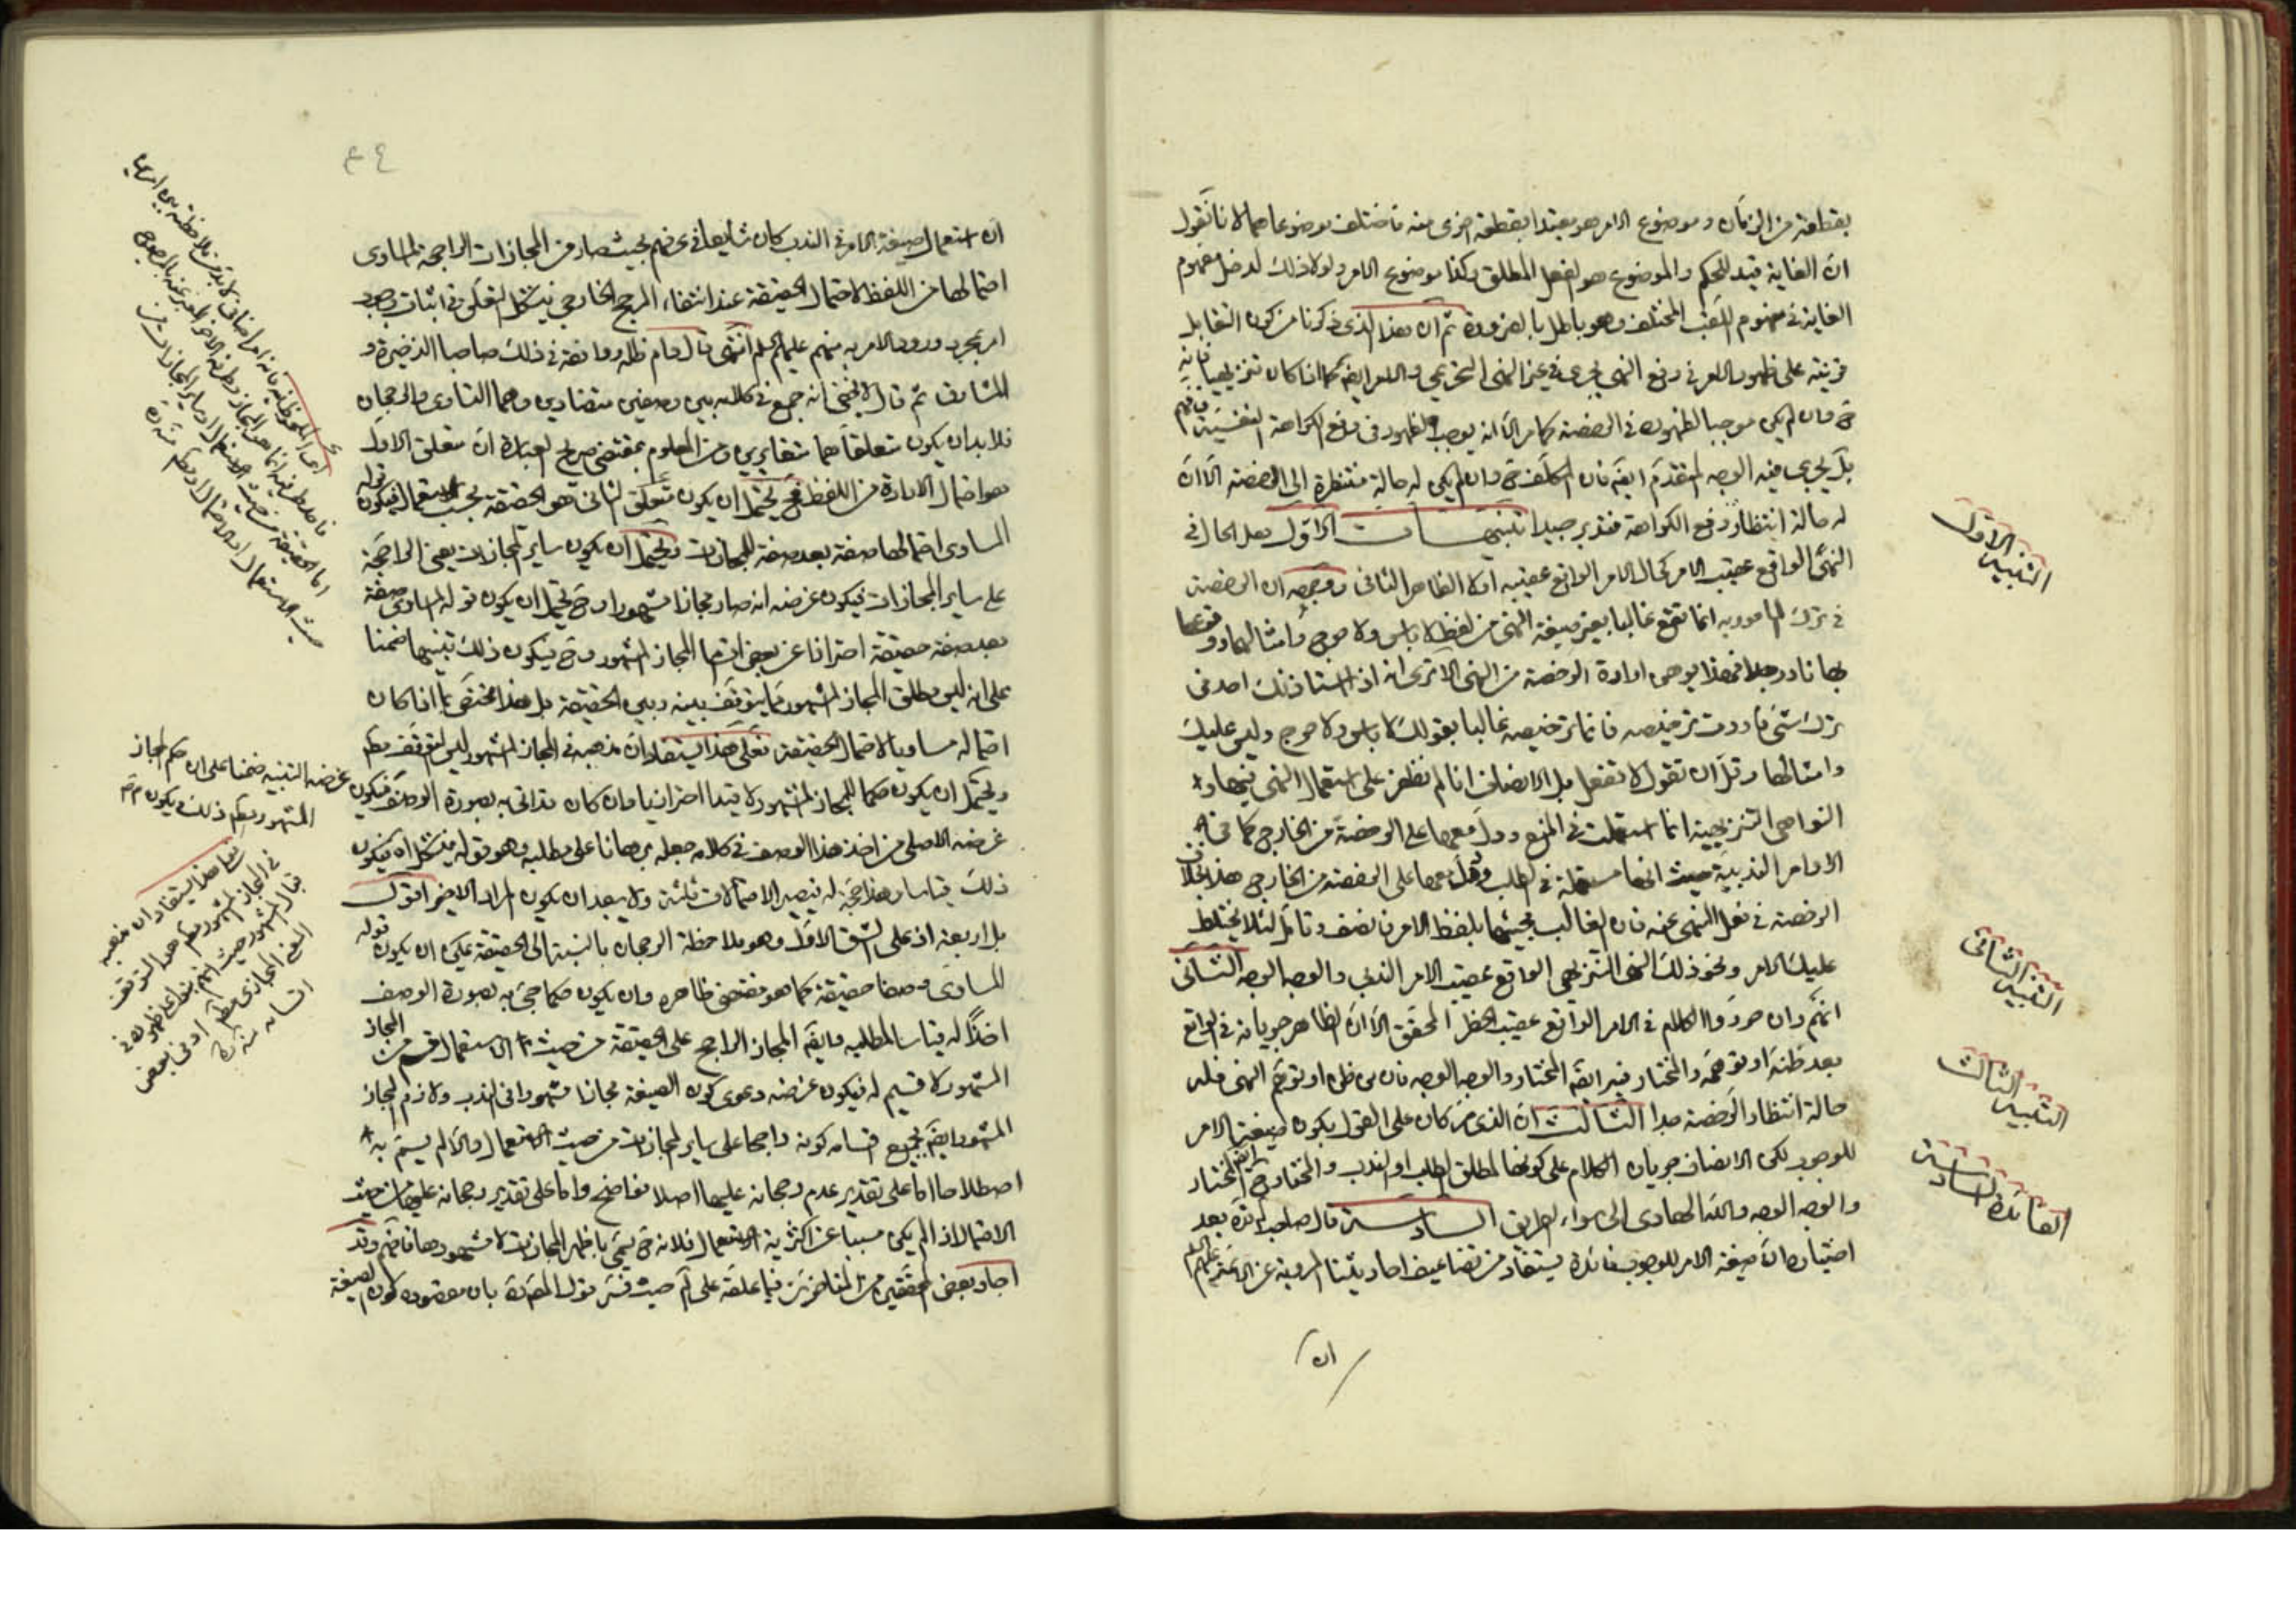 بقطعة من الزمان و موضوع الامر هو مقيدا بقطعة اخرى منه فاختلف موضوعاهما لانا نقول
ان الغاية قيد للحكم والموضوع هو الفعل المطلق وكذا موضوع الامر ولولا ذلك لدخل مفهوم
الغاية في مفهوم اللقب المختلف وهو باطل بالضرورة ثم ان هذا الذى ذكرنا من كون التقابل
قرينة على ظهور الامر في رفع النهى يجرى في غير النهى التحريمى والامر ايضا كما اذا كان تنزيهيا فانه
ح وان لم يكن موجبا لظهوره في الرخصة كما مر الا انه يوجب الظهور في رفع الكراهة النفسية فافهم
بل يجرى فيه الوجه المتقدم ايضا فان المكلف ح وان لم يكن له حالة منتظرة الى الرخصة الا ان
له حالة انتظار رفع الكراهة فتدبر جيدا تنبيهات الاول هل الحال في
النهى الواقع عقيب الامر كحال الامر الواقع عقيبه او لا الظاهر الثانى ووجهه ان الرخصة
في ترك المامور به انما تقع غالبا بغير صيغة النهى من لفظ لا باس ولا حرج وامثالهما ووقوعها
بها نادر جدا فهذا يوهن ارادة الرخصة من النهى الا ترى انه اذا استاذنك احد في
ترك شئ فاردت ترخيصه فانما ترخيصه غالبا بقولك لا باس ولا حرج وليس عليك
وامثالها وقل ان تقول لا تفعل بل الانصاف انا لم نظفر على استعمال النهى فيها و
النواهى التنزيهية انما استعملت في المنع ودل معها على الرخصة من الخارج كما في
الاوامر الندبية حيث انها مستعملة في الطلب ودل معها على الرخصة من الخارج هذا بخلاف
الرخصة في فعل المنهى عنه فان الغالب مجيئها بلفظ الامر فانصف وتامل لئلا يختلط
عليك الامر ونحو ذلك النهى التنزيهى الواقع عقيب الامر الندبى والوجه الوجه الثانى
انهم وان حرروا الكلام في الامر الواقع عقيب الحظر المحقق الا ان الظاهر جريانه في الواقع
بعد ظنه او توهمه والمختار فيه ايضا المختار والوجه الوجه فان من ظن او توهم النهى فله
حالة انتظار الرخصة جدا الثالث ان الذى مر كان على القول بكون صيغة الامر
للوجوب لكن الانصاف جريان الكلام على كونها لمطلق الطلب او الندب والمختار ح ايضا المختار
والوجه الوجه والله الهادى الى سواء الطريق السادسة قال صاحب لم قده بعد
اختياره ان صيغة الامر للوجوب فائدة يستفاد من تضاعيف احاديثنا المروية عن الائمة عليهم السلام
ان
التنبيه الاول
التنبيه الثانى
التنبيه الثالث
الفائدة السادسة
٤٤
ان استعمال صيغة الامر في الندب كان شايعا في عرفهم بحيث صار من المجازات الراجحة المساوى
احتمالها من اللفظ لاحتمال الحقيقة عند انتفاء المرجح الخارجى فيشكل التعلق في اثبات وجوب
امر بمجرد ورود الامر به منهم عليهم السلم انتهى قال دام ظله وافقه في ذلك صاحبا الذخيرة و
المشارق ثم قال لا يخفى انه جمع في كلامه بين وصفين متضادين وهما التساوى والرجحان
فلا بد ان يكون متعلقاهما متغايرين ومن المعلوم بمقتضى صريح العبارة ان متعلق الاول
هو احتمال الارادة من اللفظ فح يحتمل ان يكون متعلق الثانى هو الحقيقة بحسب الاستعمال فيكون قوله
المساوى احتمالها صفة بعد صفة للمجازات ويحتمل ان يكون ساير المجازات يعنى الراجحة
على ساير المجازات فيكون غرضه انه صار مجازا مشهورا وح يحتمل ان يكون قوله المساوى صفة
بعد صفة حقيقة احترازا عن بعض اقسام المجاز المشهور وح فيكون ذلك تنبيها ضمنا
على انه ليس مطلق المجاز المشهور مما يتوقف بينه وبين الحقيقة بل هذا مختص بما اذا كان
احتماله مساويا لاحتمال الحقيقة فعلى هذا يستفاد ان مذهبه في المجاز المشهور ليس التوقف مطلقا
ويحتمل ان يكون حكما للمجاز المشهور لا قيدا احترازيا وان كان قد اتى به بصورة الوصف فيكون
غرضه الاصلى من اخذ هذا الوصف في كلامه جعله برهانا على مطلبه وهو قوله فيشكل اه فيكون
ذلك قياسا وهذا حجة له فيصير الاحتمالات ثلثة ولا يبعد ان يكون المراد الاخير اقول
بل اربعة اذ على الشق الاول وهو ملاحظة الرجحان بالنسبة الى الحقيقة يمكن ان يكون قوله
المساوى وصفا حقيقة كما هو مقتضى ظاهره وان يكون حكما جئ به بصورة الوصف
اخذا له قياسا لمطلبه وايضا المجاز الراجح على الحقيقة من حيث الاستعمال قسم من المجاز
المشهور لا قسيم له فيكون غرضه دعوى كون الصيغة مجازا مشهورا في الندب ولازم المجاز
المشهور ايضا بجميع اقسامه كونه راجحا على ساير المجازات من حيث الاستعمال والا لم يسم به
اصطلاحا اما على تقدير عدم رجحانه عليها اصلا فواضح واما على تقدير رجحانه عليها من حيث
الاحتمال اذا لم يكن مسببا عن اكثرية الاستعمال فلانه ح يسمى باظهر المجازات لا مشهورها فافهم وقد
اجاد بعض المحققين من المتاخرين فيما علقه على لم حيث فسر قول المص ره بان مقصوده كون الصيغة
غرضه التنبيه ضمنا على ان حكم المجاز
المشهور مطلقا ذلك فيكون
فعلى هذا يستفاد ان مذهبه
في المجاز المشهور مطلقا هو التوقف